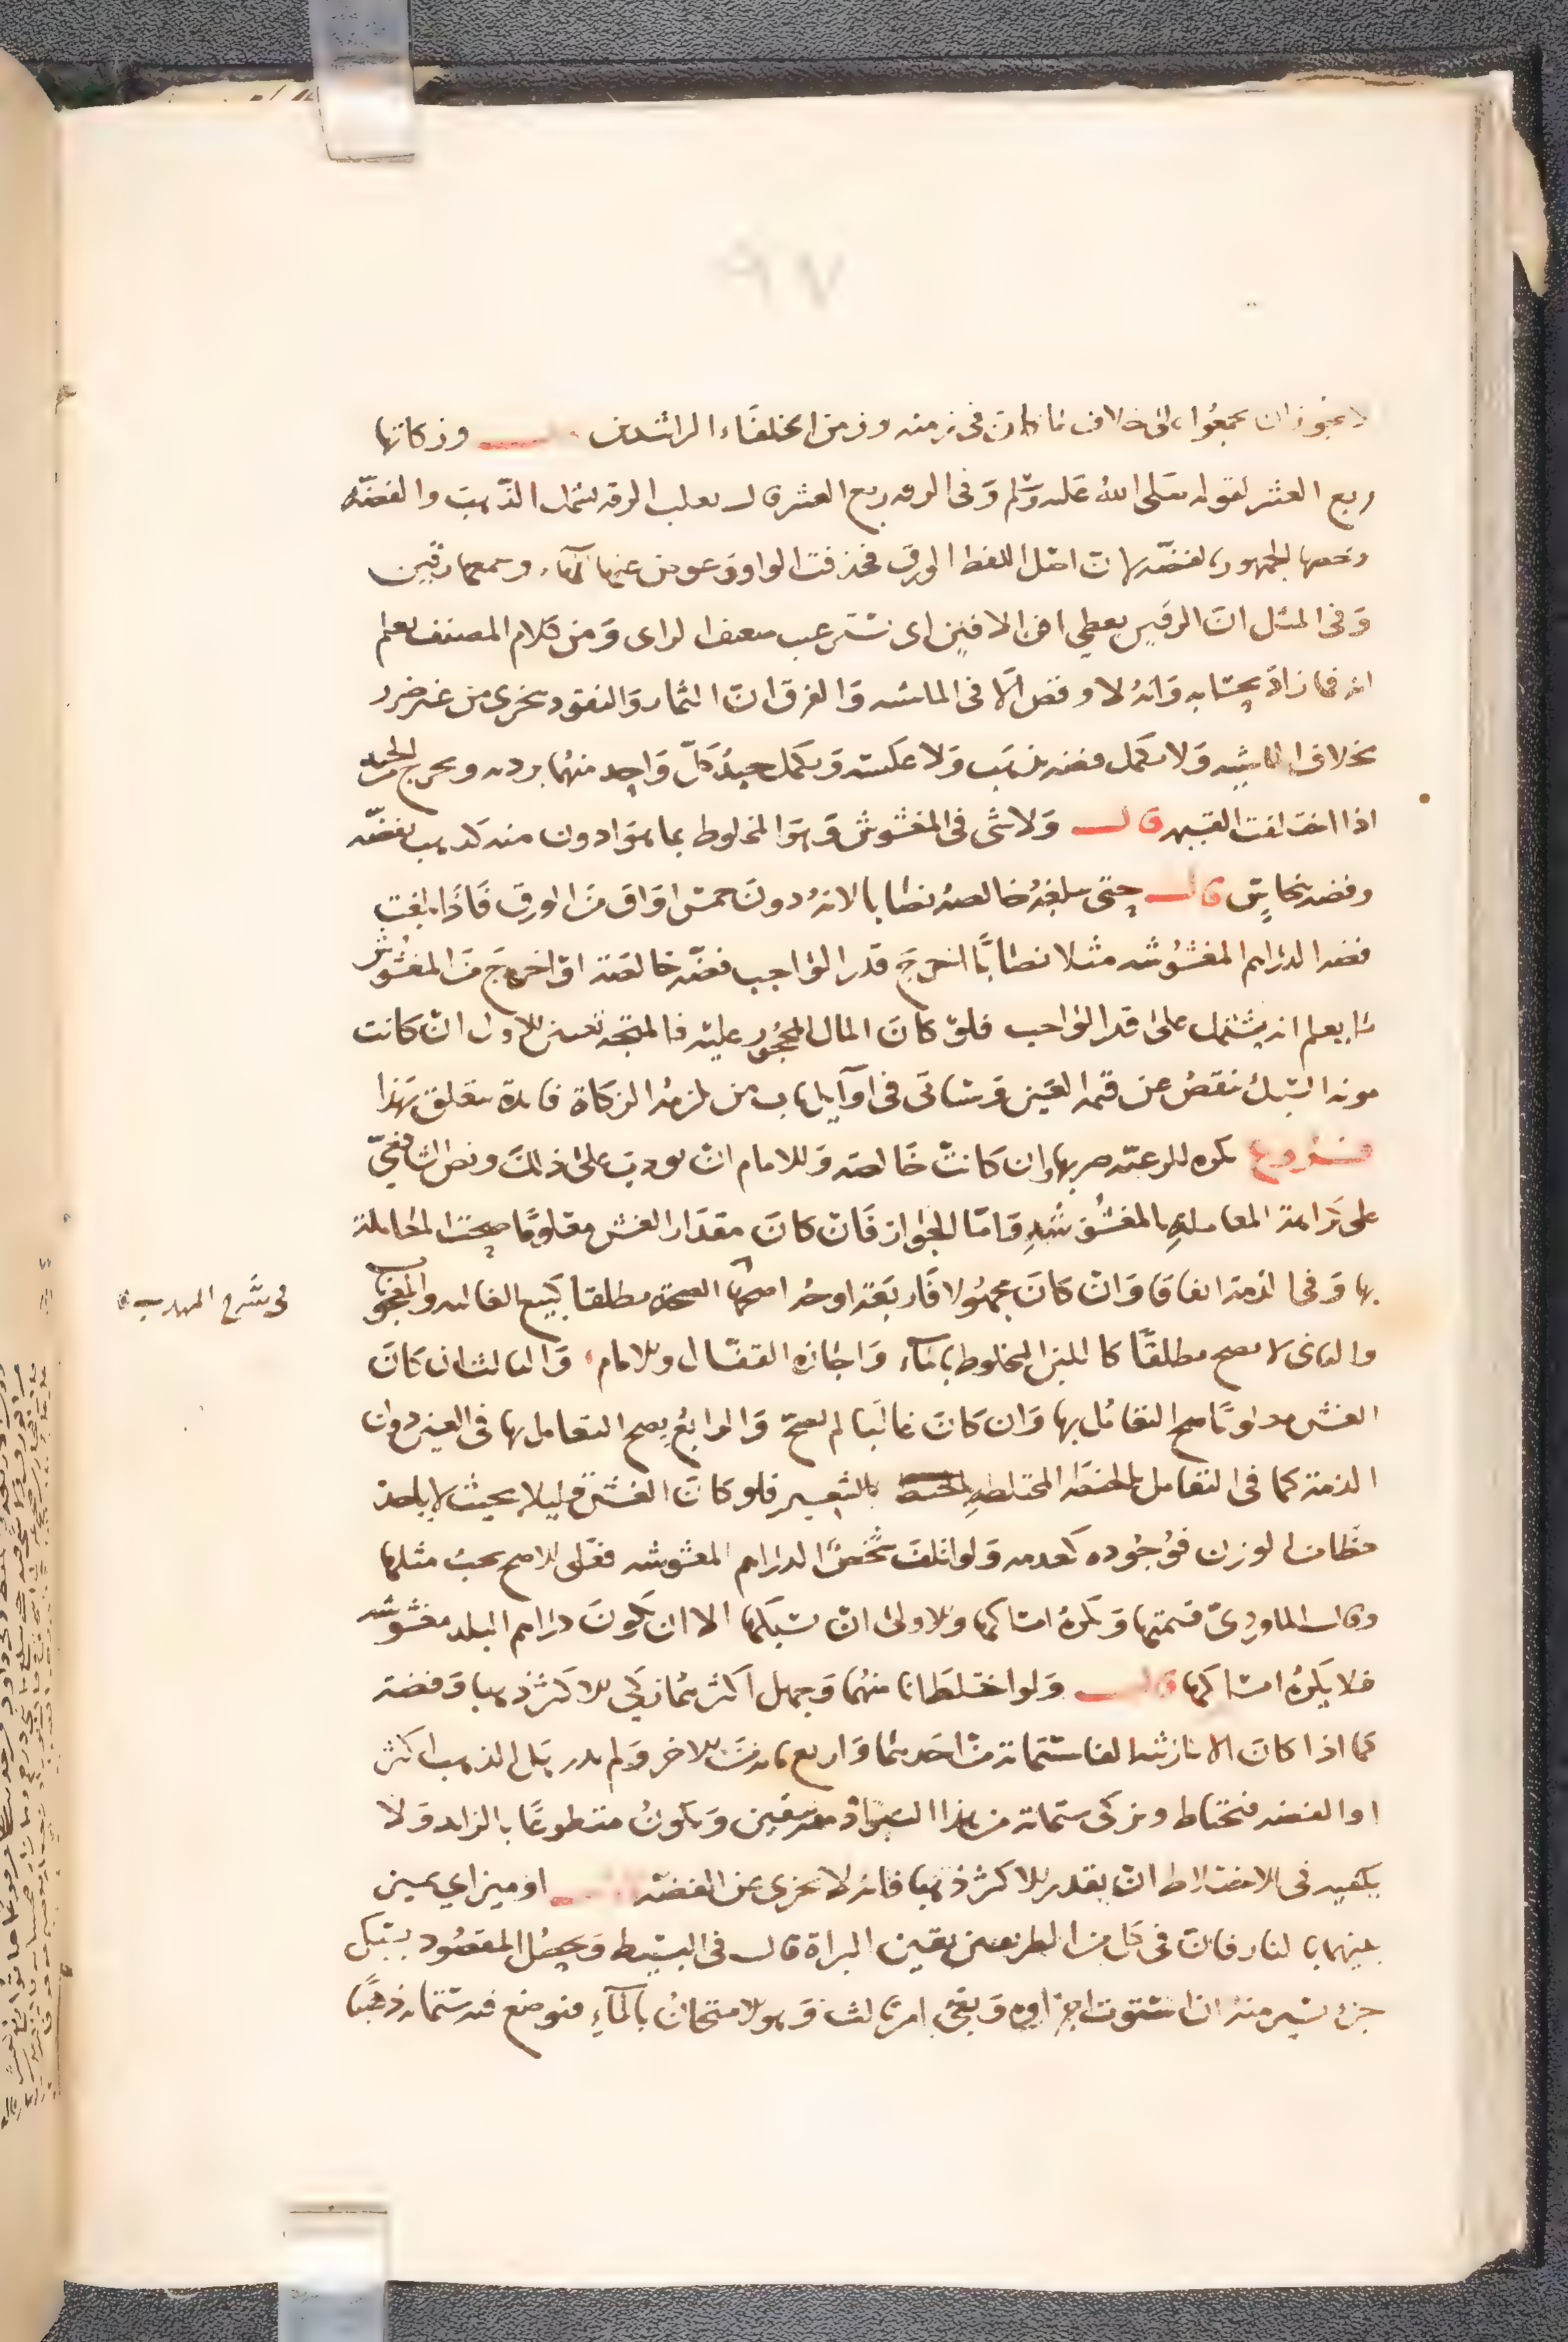 ٩٧
لا يجوز ان يجمعوا على خلاف ما كان فى زمنه وزمن الخلفاء الراشدين قال وزكاتها
ربع العشر لقوله صلى الله عليه وسلم وفى الرقه ربع العشر قال ثعلب الرقه تشمل الذهب والفضة
وخصها الجمهور بالفضه لان اصل اللفظ الورق فحذفت الواو وعوض عنها الهاء وجمعها رقين
وفى المثل ان الرقين يعطى افن الافين اى تستر عيب ضعف الراى ومن كلام المصنف يعلم
انه فما زاد بحسابه وانه لا وقص الا فى الماشيه والفرق ان الثمار والنقود تتجزى من غير ضرر
بخلاف الماشيه ولا يكمل فضه بذهب ولا عكسه ويكمل جيد كل واحد منهما برديه ويخرج من الجيد
اذا اختلفت القيمه قال ولا شى فى المغشوش وهو المخلوط بما هو ادون منه كذهب بفضه
وفضه بنحاس قال حتى يبلغ خالصه نصابا لانه دون خمس اواق من الورق فاذا بلغت
فضه الدراهم المغشوشه مثلا نصابا اخرج قدر الواجب فضه خالصة او اخرج من المغشوش
ما يعلم انه يشتمل على قدر الواجب فلو كان المال لمحجور عليه فالمتجه تعين الاول ان كانت
مونه السبك تنقص عن قيمه الغش وسياتى فى اوايل باب من تلزمه الزكاة فايدة تتعلق بهذا
فروع يكره للرعيه ضربها وان كانت خالصه وللامام ان يودب على ذلك ونص الشافعي
على كراهة المعاملة بالمغشوشة واما الجواز فان كان مقدار الغش معلوما صحت المعاملة
بها وفى الذمة اتفاقا وان كان مجهولا فاربعة اوجه اصحها الصحة مطلقا كبيع الغاليه والمعجون
فى شرح المهذب
والثانى لا يصح مطلقا كاللبن المخلوط بالماء واجازه القفال والامام والثالث ان كان
الغش مغلوبا صح التعامل بها وان كان غالبا لم يصح والرابع يصح التعامل بها فى العين دون
الذمة كما فى التعامل بالحنطه المختلطه بالشعير فلو كان الغش قليلا بحيث لا ياخذ
حظا من الوزن فوجوده كعدمه ولو اتلف شخص الدراهم المغشوشه فعلى الاصح يجب مثلها
وقال الماوردى قيمتها ويكره امساكها والاولى ان تسبكها الا ان يكون دراهم البلد مغشوشه
فلا يكره امساكها قال ولو اختلط انا منهما وجهل اكثرهما زكى الاكثر ذهبا وفضة
كما اذا كان الانا زنته الفا ستماية من احدهما واربع ماية من الاخر ولم يدر هل الذهب اكثر
او الفضه فيحتاط ويزكى ستماية من هذا ويكون متطوعا بالزايد ولا
يكفيه فى الاحتياط ان يقدر الاكثر ذهبا فانه لا يجزى عن الفضه قال او ميز اي يميز
بينهما بالنار فان فى كل من الطريقين يقين البراة قال فى البسيط ويحصل المقصود بسبك
جزء يسير منه اذا استوت اجزاوه وبقى امر ثالث وهو الامتحان بالماء فيوضع فيه ستماية ذهبا